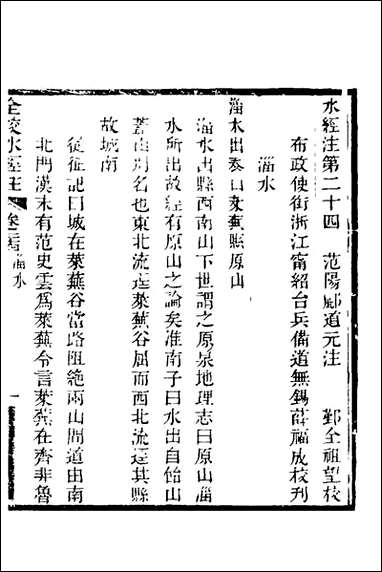 水經注第二十四　范陽酈道元注　　鄞全祖望校
布政使銜浙江甯紹台兵備道無錫薛福成校刊
淄水
淄水出泰山萊蕪縣原山
淄水出縣西南山下世謂之原泉地理志曰原山淄
水所出故經有原山之論矣淮南子曰水出自飴山
蓋山別名也東北流逕萊蕪谷屈而西北流逕其縣
故城南
從征記曰城在萊蕪谷當路阻絶兩山間道由南
北門漢末有范史雲爲萊蕪令言萊蕪在齊非魯
全校水經注　卷二十四　淄水　一